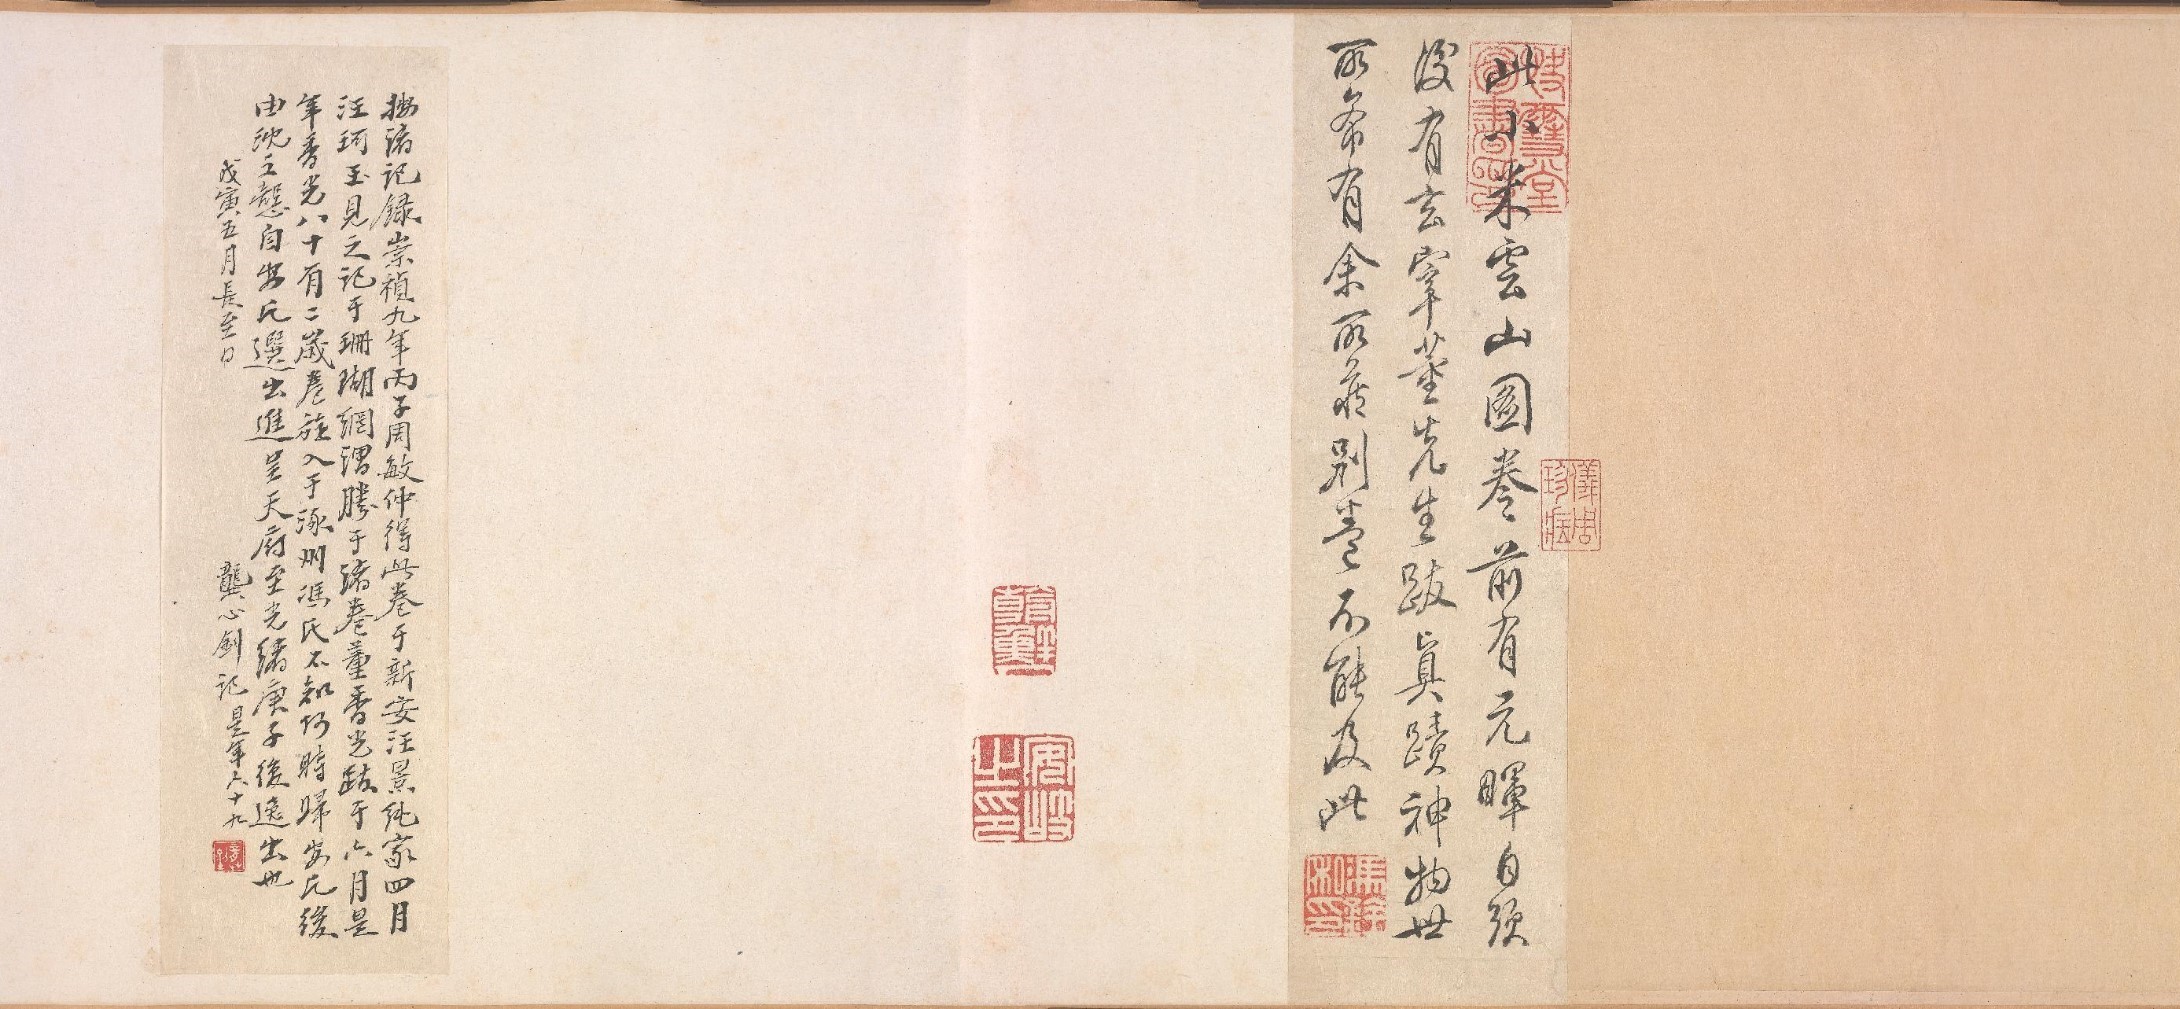 此小米雲山圖卷前有元暉自題
後有玄宰董先生跋真蹟神物世
所希有余所藏別卷不能及此
快雪堂
圖書印
儀周
珍藏
馮銓
私印
安岐
之印
按諸記錄崇禎九年丙子周敏仲得此卷于新安汪景純家四月
汪珂玉見之記于珊瑚網謂勝于諸卷董香光跋于六月是
年香光八十有二歲卷旋入于涿州馮氏不知何時歸安氏後
由沈王懿自安氏選出進呈天府至光緒庚子後遂出也
戊寅五月長至日 龔心釗記是年六十九